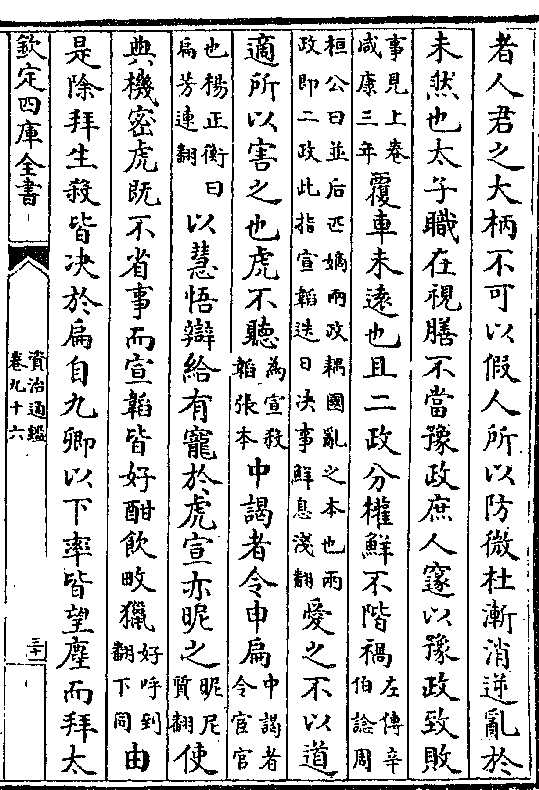 者人君之大柄不可以假人所以防微杜漸消逆亂於
未然也太子職在視膳不當豫政庶人邃以豫政致敗
事見上卷
咸康三年
覆車未遠也且二政分權鮮不階禍
左傳辛
伯諗周
桓公曰並后匹嫡兩政耦國亂之本也兩
政即二政此指宣韜迭日决事鮮息淺翻
愛之不以道
適所以害之也虎不聽
為宣殺
韜張本
中謁者令申扁
中謁者
令宦官
也楊正衡曰
扁芳連翻
以慧悟辯給有寵於虎宣亦昵之
昵尼
質翻
使
典機密虎既不省事而宣韜皆好酣飲畋獵
好呼到
翻下同
由
是除拜生殺皆决於扁自九卿以下率皆望塵而拜太
欽定四庫全書
資治通鑑
卷九十六